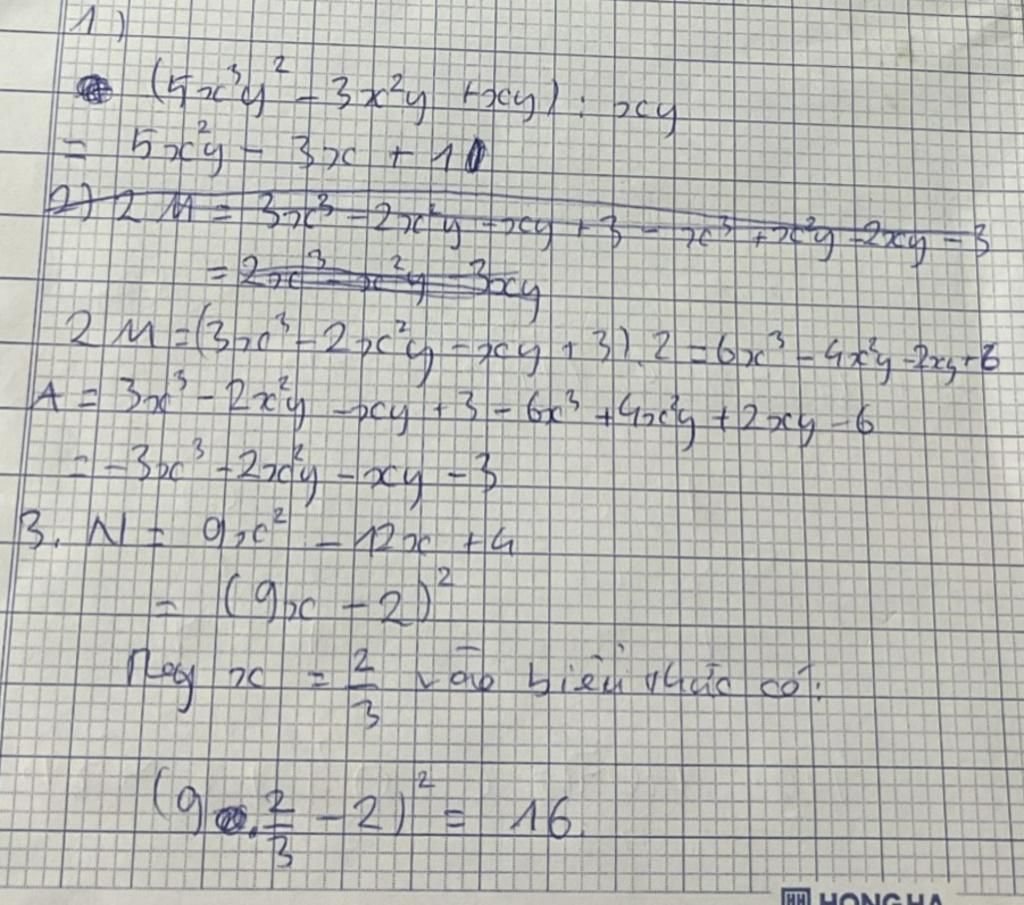 1)
(5x³y² - 3x²y + xy) : xy
= 5x²y - 3x + 1
2) 2M = 3x³ - 2x²y - xy + 3 - x³ + x²y - 2xy - 3
= 2x³ - x²y - 3xy
2M = (3x³ - 2x²y - xy + 3).2 = 6x³ - 4x²y - 2xy + 6
A = 3x³ - 2x²y - xy + 3 - 6x³ + 4x²y + 2xy - 6
= -3x³ - 2x²y - xy - 3
3. N = 9x² - 12x + 4
= (9x - 2)²
Thay x = 2/3 vào biểu thức có:
(9 . 2/3 - 2)² = 16.
HH HONG HA